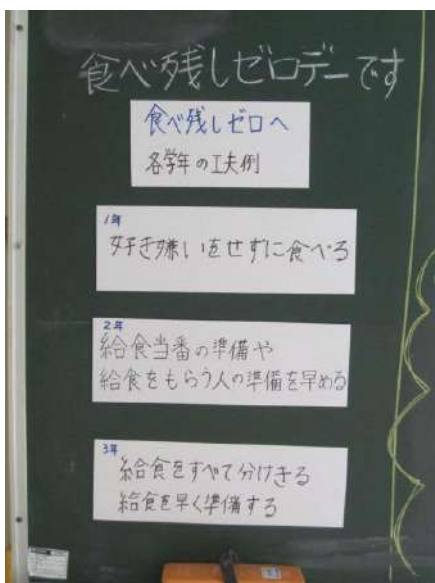 食べ残しゼロデーです
食べ残しゼロへ
各学年の工夫例
1年
好き嫌いをせずに食べる
2年
給食当番の準備や
給食をもらう人の準備を早める
3年
給食をすべて分けきる
給食を早く準備する